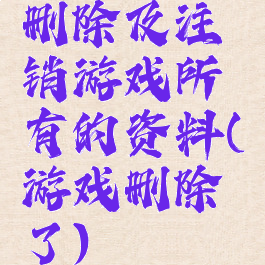 删除及注
销游戏所
有的资料(
游戏删除
了)